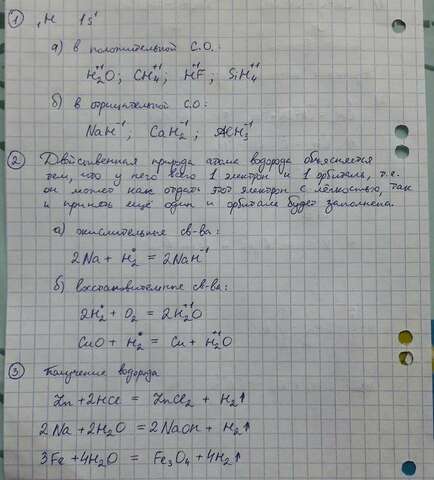 ① ₁H 1s¹
а) в положительной С.О.:
H₂⁺¹O ; CH₄⁺¹ ; H⁺¹F ; SiH₄⁺¹
б) в отрицательной С.О:
NaH⁻¹ ; CaH₂⁻¹ ; AlH₃⁻¹
② Двойственная природа атома водорода объясняется
тем, что у него всего 1 электрон и 1 орбиталь, т.е.
он может как отдать этот электрон с лёгкостью, так
и принять ещё один и орбиталь будет заполнена.
а) окислительные св-ва:
2Na + H₂⁰ = 2NaH⁻¹
б) восстановительные св-ва:
2H₂⁰ + O₂ = 2H₂⁺¹O
CuO + H₂⁰ = Cu + H₂⁺¹O
③ Получение водорода
Zn + 2HCl = ZnCl₂ + H₂↑
2Na + 2H₂O = 2NaOH + H₂↑
3Fe + 4H₂O = Fe₃O₄ + 4H₂↑